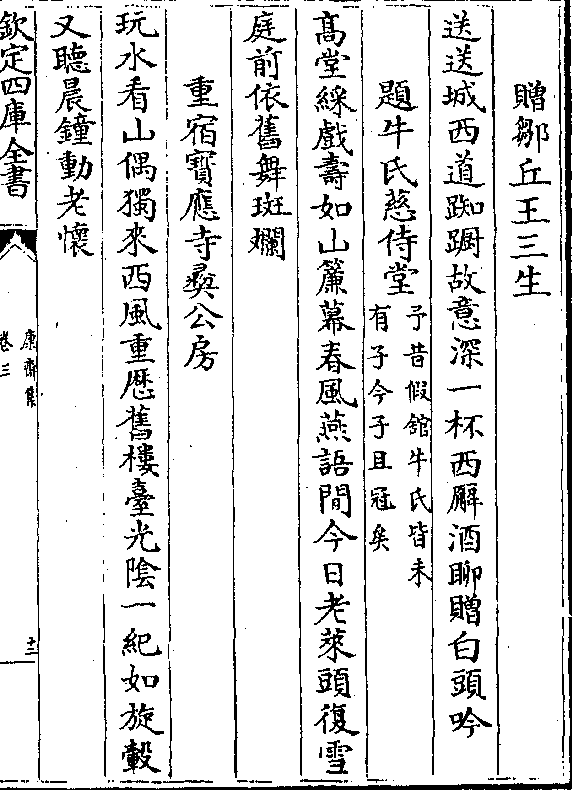 贈鄒丘王三生
送送城西道踟蹰故意深一杯西廨酒聊贈白頭吟
題牛氏慈侍堂予昔假館牛氏皆未
有子今子且冠矣
髙堂綵戲壽如山簾幕春風燕語間今日老萊頭復雪
庭前依舊舞斑斕
重宿寳應寺㷼公房
玩水看山偶獨來西風重歴舊樓臺光陰一紀如旋轂
又聽晨鐘動老懷
欽定四庫全書
康齋集
卷三
十二